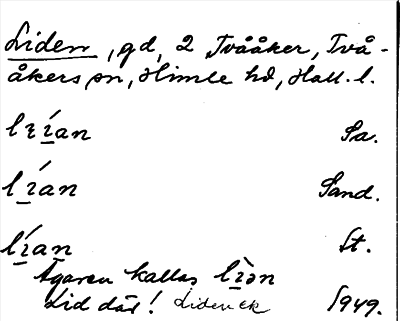 Liden, gd, 2 Tvååker, Två-
åkers sn, Himle hd, Hall. l.
lɪ́an Sa.
lɪ́an Sand.
lɪ́an St.
Ägaren kallas lɪ̀ən
Lid där! Liden ek 1949.